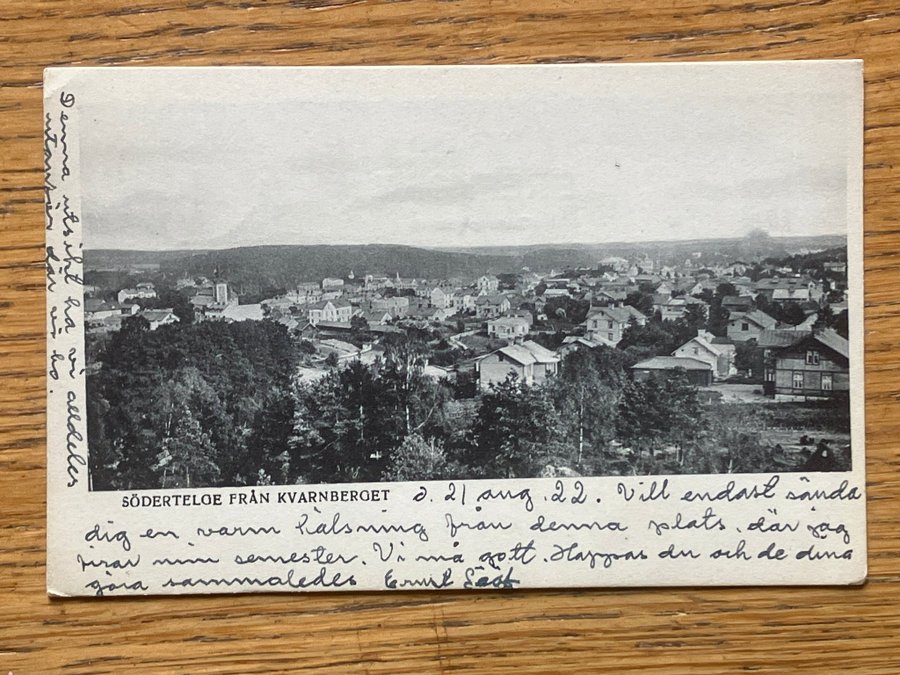 Denna utsikt ha vi alldeles
utanför där vi bo.
SÖDERTELGE FRÅN KVARNBERGET d. 21 aug. 22. Vill endast sända
dig en varm hälsning från denna plats, där jag
firar min semester. Vi må gott. Hoppas du och de dina
göra sammaledes Ernst